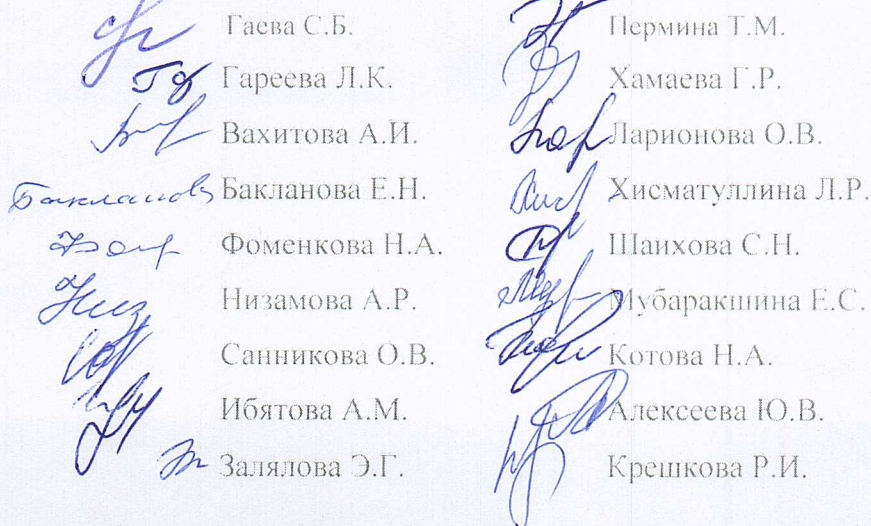 Гаева С.Б.
Гареева Л.К.
Вахитова А.И.
Бакланова Бакланова Е.Н.
Фоменкова Н.А.
Низамова А.Р.
Санникова О.В.
Ибятова А.М.
Залялова Э.Г.
Пермина Т.М.
Хамаева Г.Р.
Ларионова О.В.
Хисматуллина Л.Р.
Шаихова С.Н.
Мубаракшина Е.С.
Котова Н.А.
Алексеева Ю.В.
Крешкова Р.И.